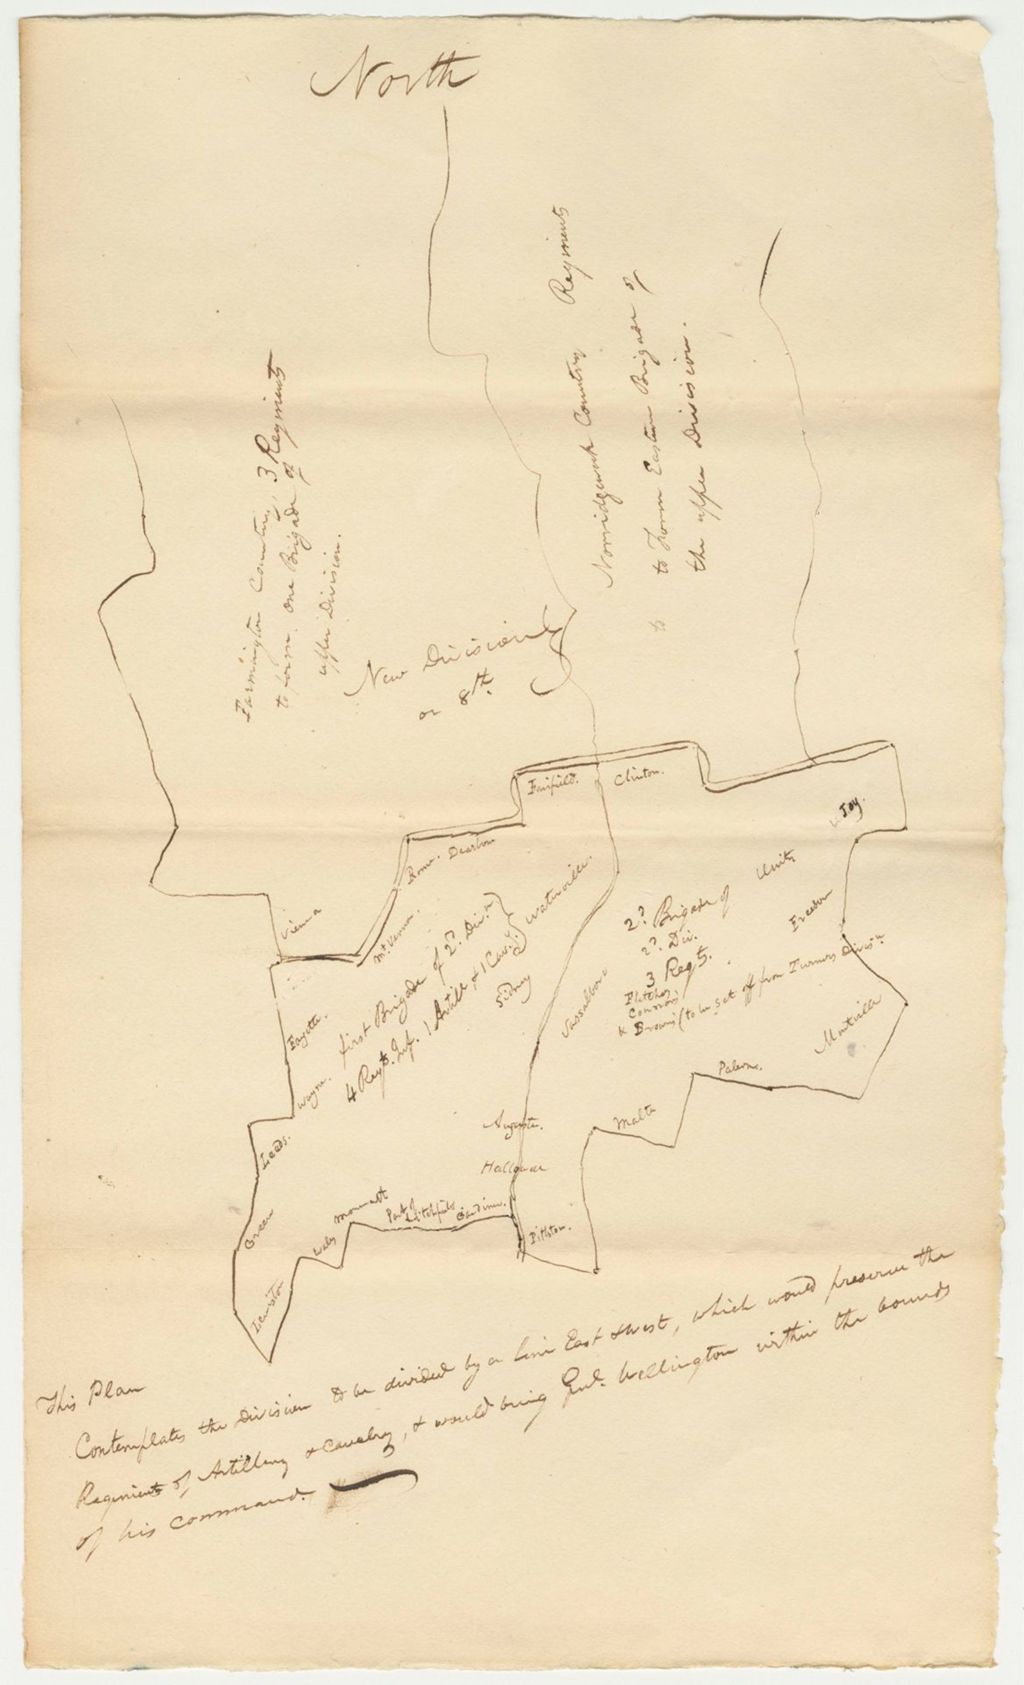 North
Farmington Country, 3 Regiments
to form one Brigade of
upper Division.
Norridgewock Country Regiments
to Form Eastern Brigade of
the upper Division.
to
New Division
or 8th.
Fairfield.
Clinton.
Joy.
Rome.
Dearborn
Vienna
Mt Vernon.
Waterville.
Unity
Freedom
first Brigade of 2d. Divn
4 Regts. Inf. 1 Artill & 1 Cavy.
Sidney
2d. Brigade of
2d. Div.
3 Regts.
Fletchers
Connors
Browns (to be set off from Turners Divisn
Vassalboro
Fayette.
Wayne.
Montville
Palermo.
Malta
Augusta.
Hallowell
Leeds.
Green
Wales
Monmouth
Part of
Litchfield
Gardiner.
Pittston.
Lewiston
This Plan
Contemplates the Division to be divided by a line East & West, which would preserve the
Regiments of Artillery & Cavalry, & would bring Genl. Wellington within the bounds
of his command.